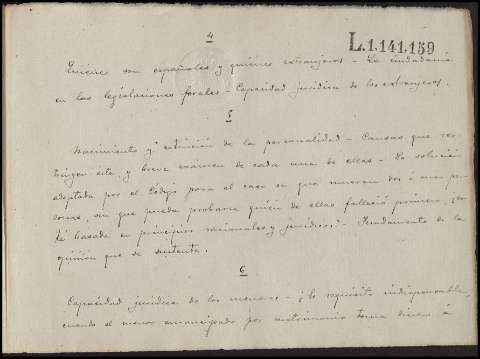 4
L.1.141.159
Quiénes son españoles y quiénes extranjeros - La ciudadanía
en las legislaciones forales - Capacidad jurídica de los extranjeros.
5
Nacimiento y extinción de la personalidad - Causas que res-
tringen esta, y breve exámen de cada una de ellas - La solución
adoptada por el Código para el caso en que mueran dos ó mas per-
sonas, sin que pueda probarse quién de ellas falleció primero, ¿es-
tá basada en principios racionales y jurídicos? - Fundamento de la
opinión que se sustenta.
6
Capacidad jurídica de los menores - ¿Es requisito indispensable,
cuando el menor emancipado por matrimonio toma dinero á